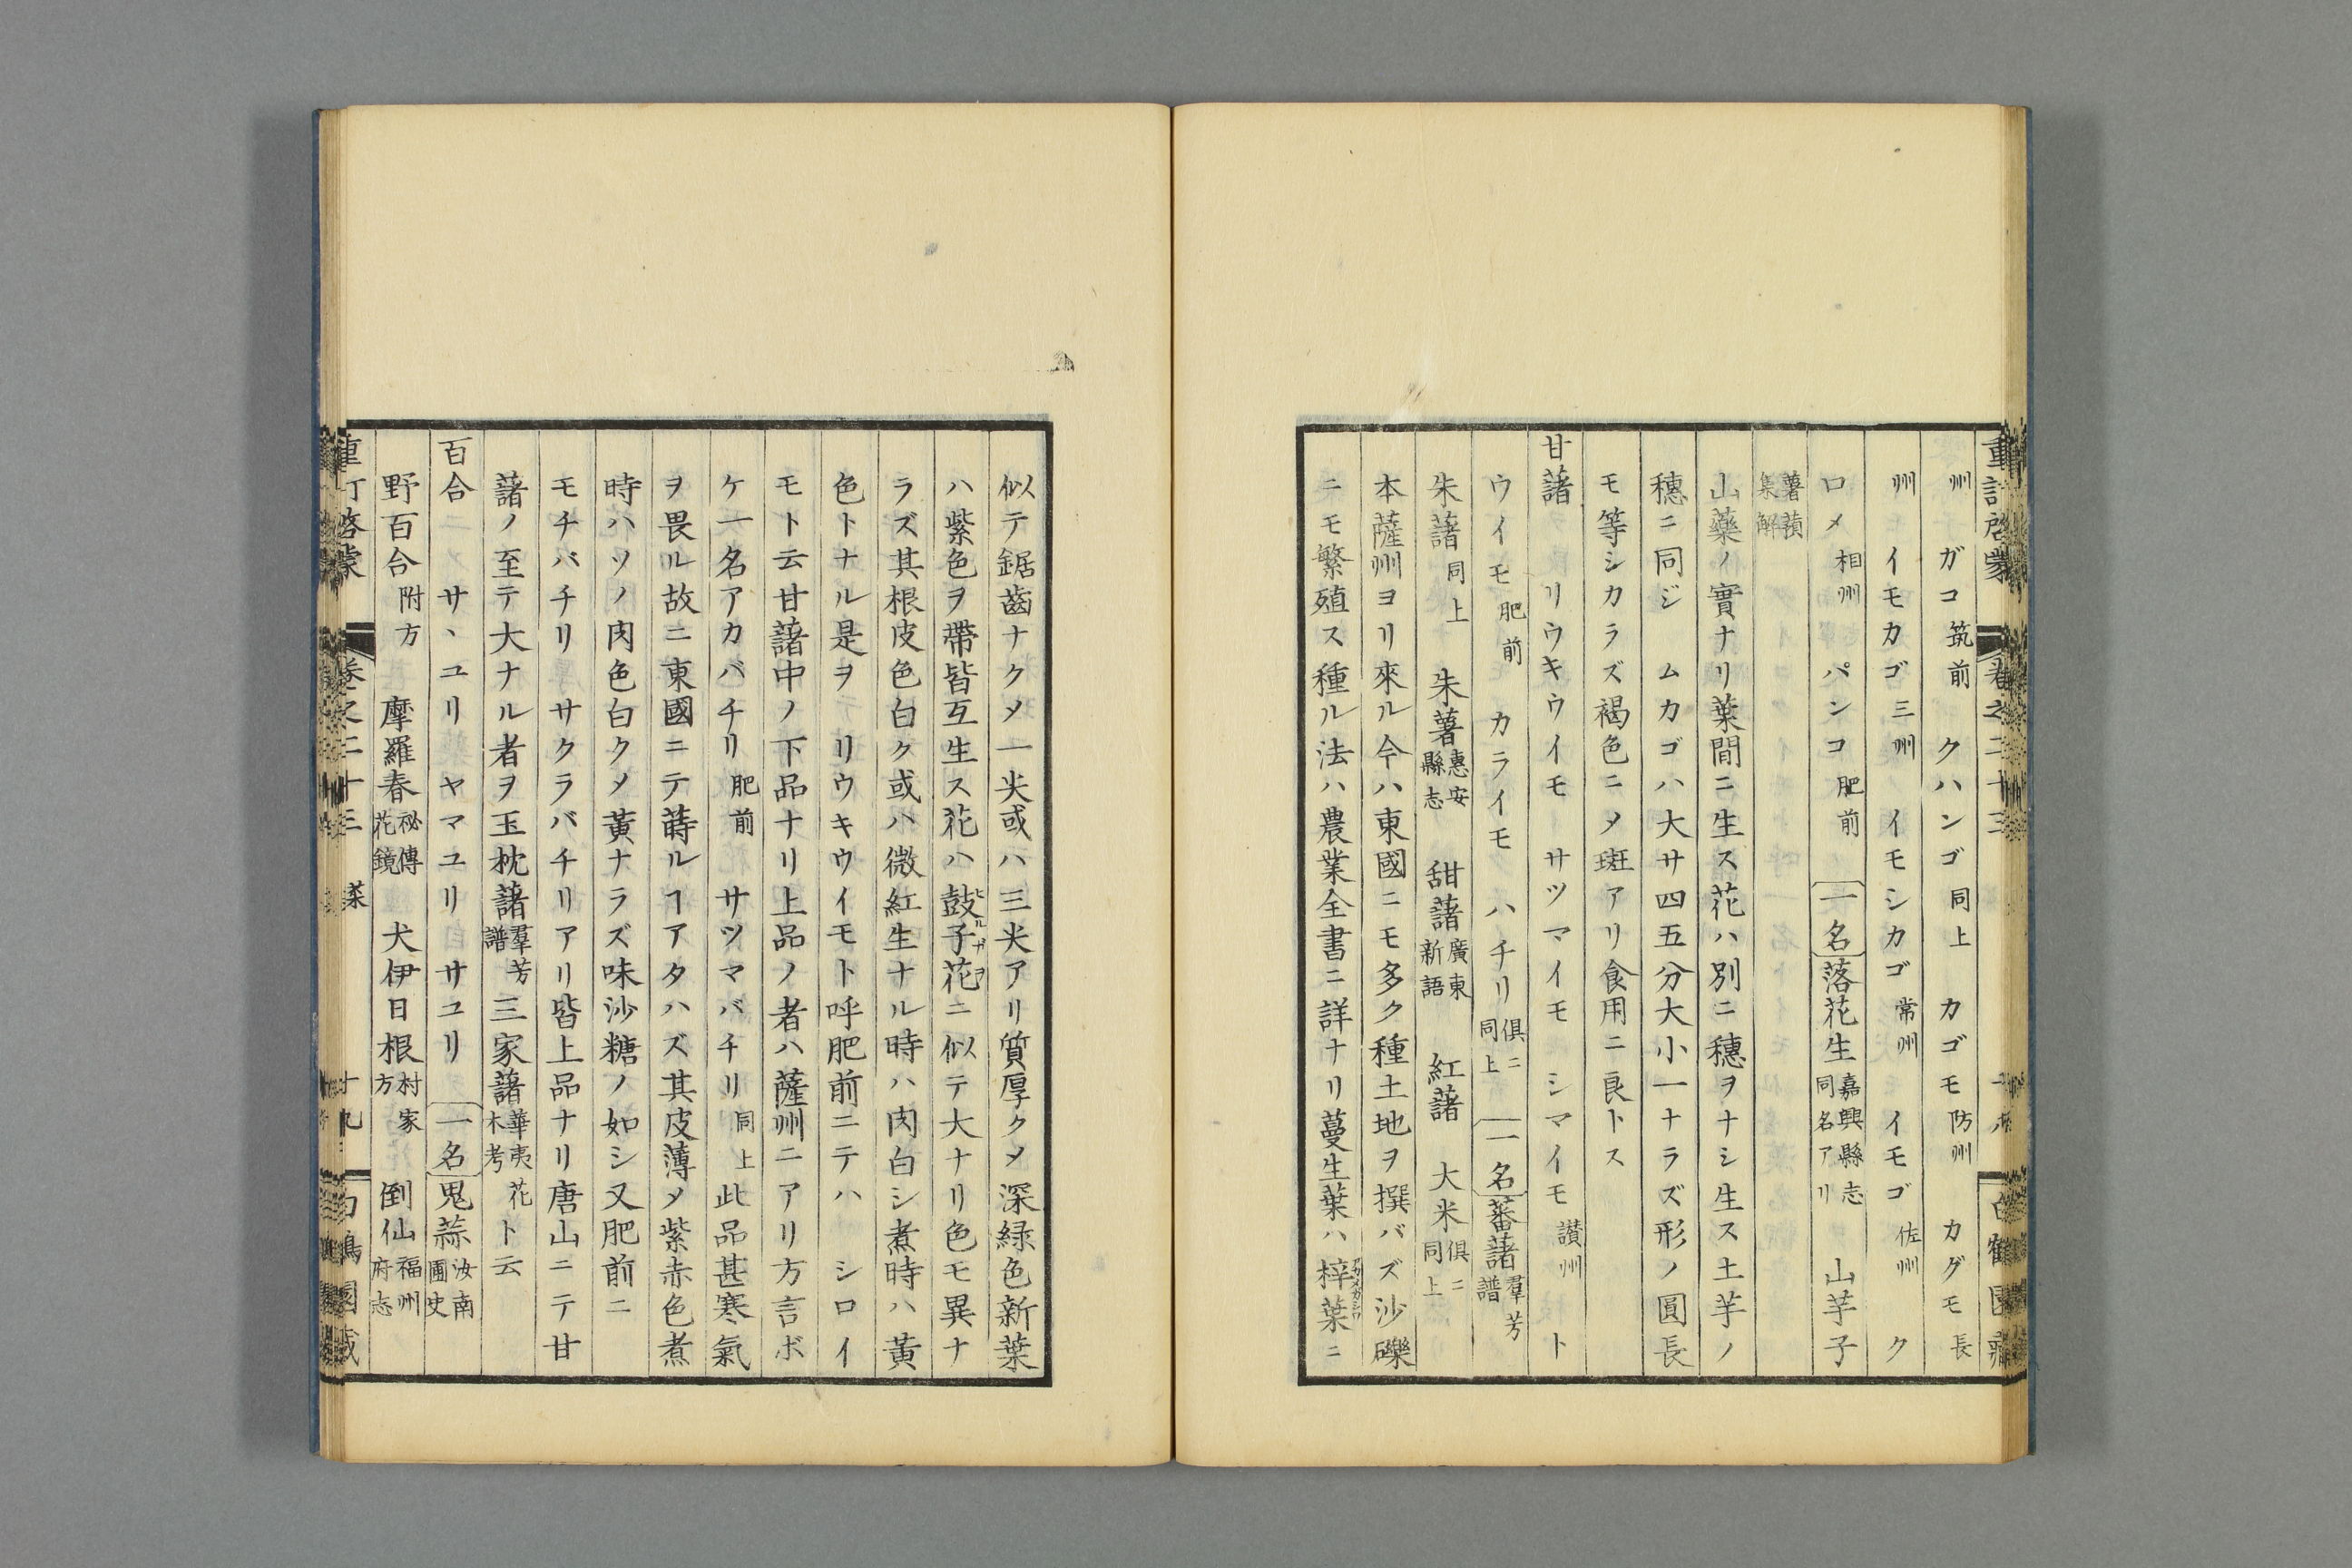 重訂啓蒙 卷之二十三
州 ガコ筑前 クハンゴ同上 カゴモ防州 カグモ長
州 イモカゴ三州 イモシカゴ常州 イモゴ佐州 ク
ロメ相州 パンコ肥前 一名落花生嘉興縣志同名アリ 山芋子
薯蕷集解
山藥ノ實ナリ葉間ニ生ス花ハ別ニ穗ヲナシ生ス土芋ノ
穗ニ同ジ ムカゴハ大サ四五分大小一ナラズ形ノ圓長
モ等シカラズ褐色ニメ斑アリ食用ニ良トス
甘藷 リウキウイモ サツマイモ シマイモ讃州 ト
ウイモ肥前 カライモ ハチリ俱ニ同上 一名蕃藷羣芳譜
朱藷同上 朱薯惠安縣志 甜藷廣東新語 紅藷 大米俱ニ同上
本薩州ヨリ來ル今ハ東國ニモ多ク種土地ヲ撰バズ沙礫
ニモ繁殖ス種ル法ハ農業全書ニ詳ナリ蔓生葉ハ梓葉ニ
似テ鋸齒ナクメ一尖或ハ三尖アリ質厚クメ深緑色新葉
ハ紫色ヲ帶皆互生ス花ハ鼓子花ニ似テ大ナリ色モ異ナ
ラズ其根皮色白ク或ハ微紅生ナル時ハ肉白シ煮時ハ黃
色トナル是ヲ リウキウイモト呼肥前ニテハ シロイ
モト云甘藷中ノ下品ナリ上品ノ者ハ薩州ニアリ方言ボ
ケ一名アカバチリ肥前 サツマバチリ同上 此品甚寒氣
ヲ畏ル故ニ東國ニテ蒔ルヿアタハズ其皮薄メ紫赤色煮
時ハソノ肉色白クメ黃ナラズ味沙糖ノ如シ又肥前ニ
モチバチリ サクラバチリアリ皆上品ナリ唐山ニテ甘
藷ノ至テ大ナル者ヲ玉枕藷羣芳譜三家藷華夷花木考ト云
百合 サヽユリ ヤマユリ サユリ 一名鬼蒜汝南圃史
野百合附方 摩羅春祕傳花鏡 犬伊日根村家方 倒仙福州府志
重訂啓蒙 卷之二十三 菜 十九